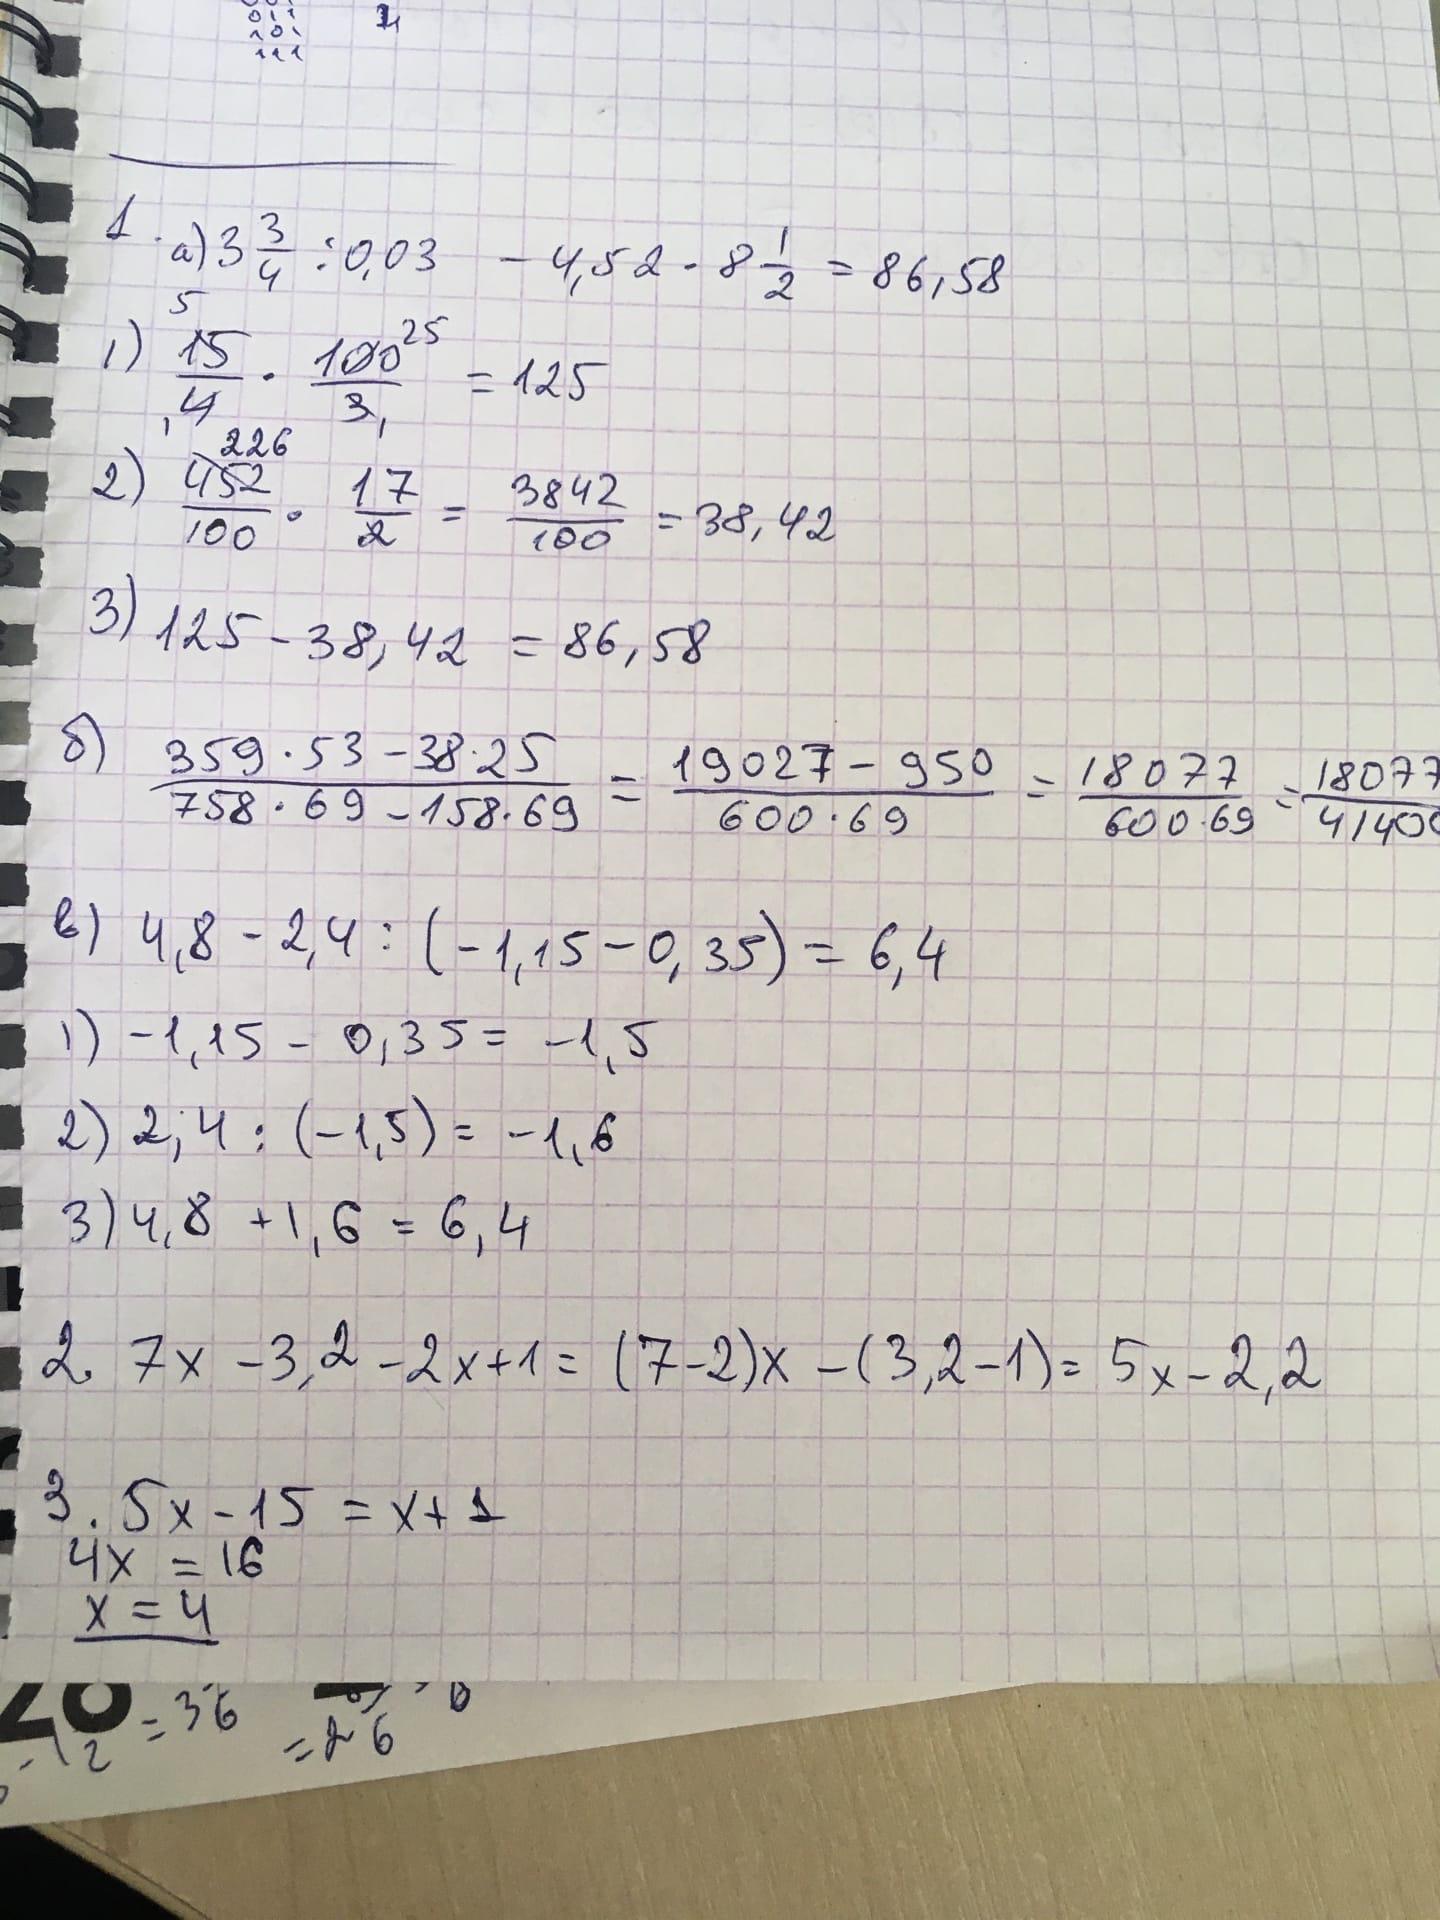 011
101
111
1
1. а) 3 3/4 : 0,03 - 4,52 · 8 1/2 = 86,58
1) 15/4 · 100/3 = 125
5 25 1 1
2) 452/100 · 17/2 = 3842/100 = 38,42
226
3) 125 - 38,42 = 86,58
б) 359·53-38·25/758·69-158·69 = 19027-950/600·69 = 18077/600·69 = 18077/41400
в) 4,8 - 2,4 : (-1,15 - 0,35) = 6,4
1) -1,15 - 0,35 = -1,5
2) 2,4 : (-1,5) = -1,6
3) 4,8 + 1,6 = 6,4
2. 7x - 3,2 - 2x + 1 = (7-2)x - (3,2-1) = 5x - 2,2
3. 5x - 15 = x + 1
4x = 16
x = 4
= 36
= 26